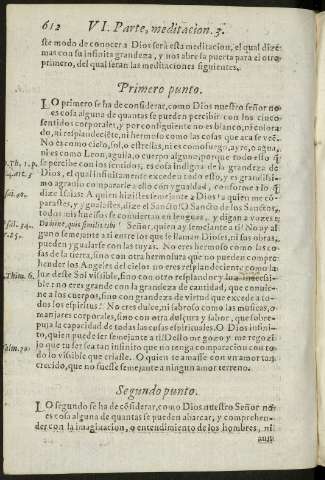 612 VI. Parte, meditacion. 3.
ste modo de conocer a Dios será esta meditacion, el qual dizé-
mas con su infinita grandeza, y nos abre la puerta para el otro
primero, del qual seran las meditaciones siguientes.
Primero punto.
LO primero se ha de considerar, como Dios nuestro señor no
es cosa alguna de quantas se pueden percibir con los cinco
sentidos corporales, y por consiguiente no es blanco, ni colora-
do, ni resplandeciéte, ni hermoso como las cosas que aca se veé.
No es como cielo, sol, o estrellas, ni es como fuego, ayre, o agua,
ni es como Leon, aguila, o cuerpo alguno, porque todo esto q̃
se percibe con los sentidos, es cosa indigna de la grandeza de
Dios, el qual infinitamente excede todo esso, y es grandissi-
mo agrauio compararle a ello con ygualdad, conforme a lo q̃
dize Isaias: A quien hizistes semejante a Dios? a quien me cō-
parastes, y ygualastes, dize el Sancto? O Sancto de los Sanctos,
todos mis huessos se conuiertan en lenguas, y digan a vozes:
Domine, quis similis tibi? Señor, quien ay semejante a ti? No ay al-
guno semejante a ti entre los que se llaman Dioses, ni sus obras,
pueden ygualarse con las tuyas. No eres hermoso como las co-
sas de la tierra, sino con otra hermosura que no pueden compre-
hender los Angeles del cielo: no eres resplandeciente como la
luz deste Sol visible, sino con otro resplandor y luz inaccessi-
ble: no eres grande con la grandeza de cantidad, que conuie-
ne a los cuerpos, sino con grandeza de virtud que excede a to-
dos los espiritus: No eres dulce, ni sabroso como las musicas, o
manjares corporales, sino con otra dulçura y sabor, que sobre-
puja la capacidad de todas las cosas espirituales. O Dios infini-
to, quien puede ser semejante a ti? O ello me gozo y me regozi-
jo que tu ser sea tan infinito que no tenga comparacion con to-
do lo visible que criaste. O quien te amasse con vn amor tan
crecido, que no fuesse semejante a ningun amor terreno.
Segundo punto.
LO segundo se ha de cōsiderar, como Dios nuestro Señor no
es cosa alguna de quantas se pueden abarcar, y comprehen-
der con la imaginacion, o entendimiento de los hombres, ni
aun